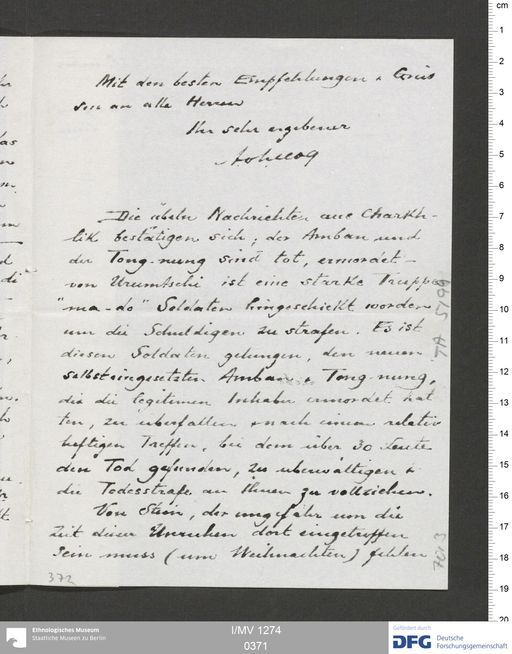 Mit den besten Empfehlungen & Grüs
sen an alle Herren
Ihr sehr ergebener
Die übeln Nachrichten aus Charkh-
lik bestätigen sich; der Amban und
der Tong-nung sind tot, ermordet -
von Urumtschi ist eine starke Truppe
"ma-do" Soldaten hingeschickt worden
um die Schuldigen zu strafen. Es ist
diesen Soldaten gelungen, den neuen
selbsteingesetzten Amban & Tong-nung,
die die legitimen Inhaber ermordet hat
ten, zu überfallen & nach einem relativ
heftigen Treffen, bei dem über 30 Leute
den Tod gefunden, zu überwältigen &
die Todesstrafe an Ihnen zu vollziehen.
Von Stein, der ungefähr um die
Zeit dieser Unruhen dort eingetroffen
sein muss (um Weihnachten) fehlen
372
TA 5199
7013
cm
1
2
3
4
5
6
7
8
9
10
11
12
13
14
15
16
17
18
19
20
Ethnologisches Museum
Staatliche Museen zu Berlin
I/MV 1274
0371
Gefördert durch
DFG
Deutsche
Forschungsgemeinschaft